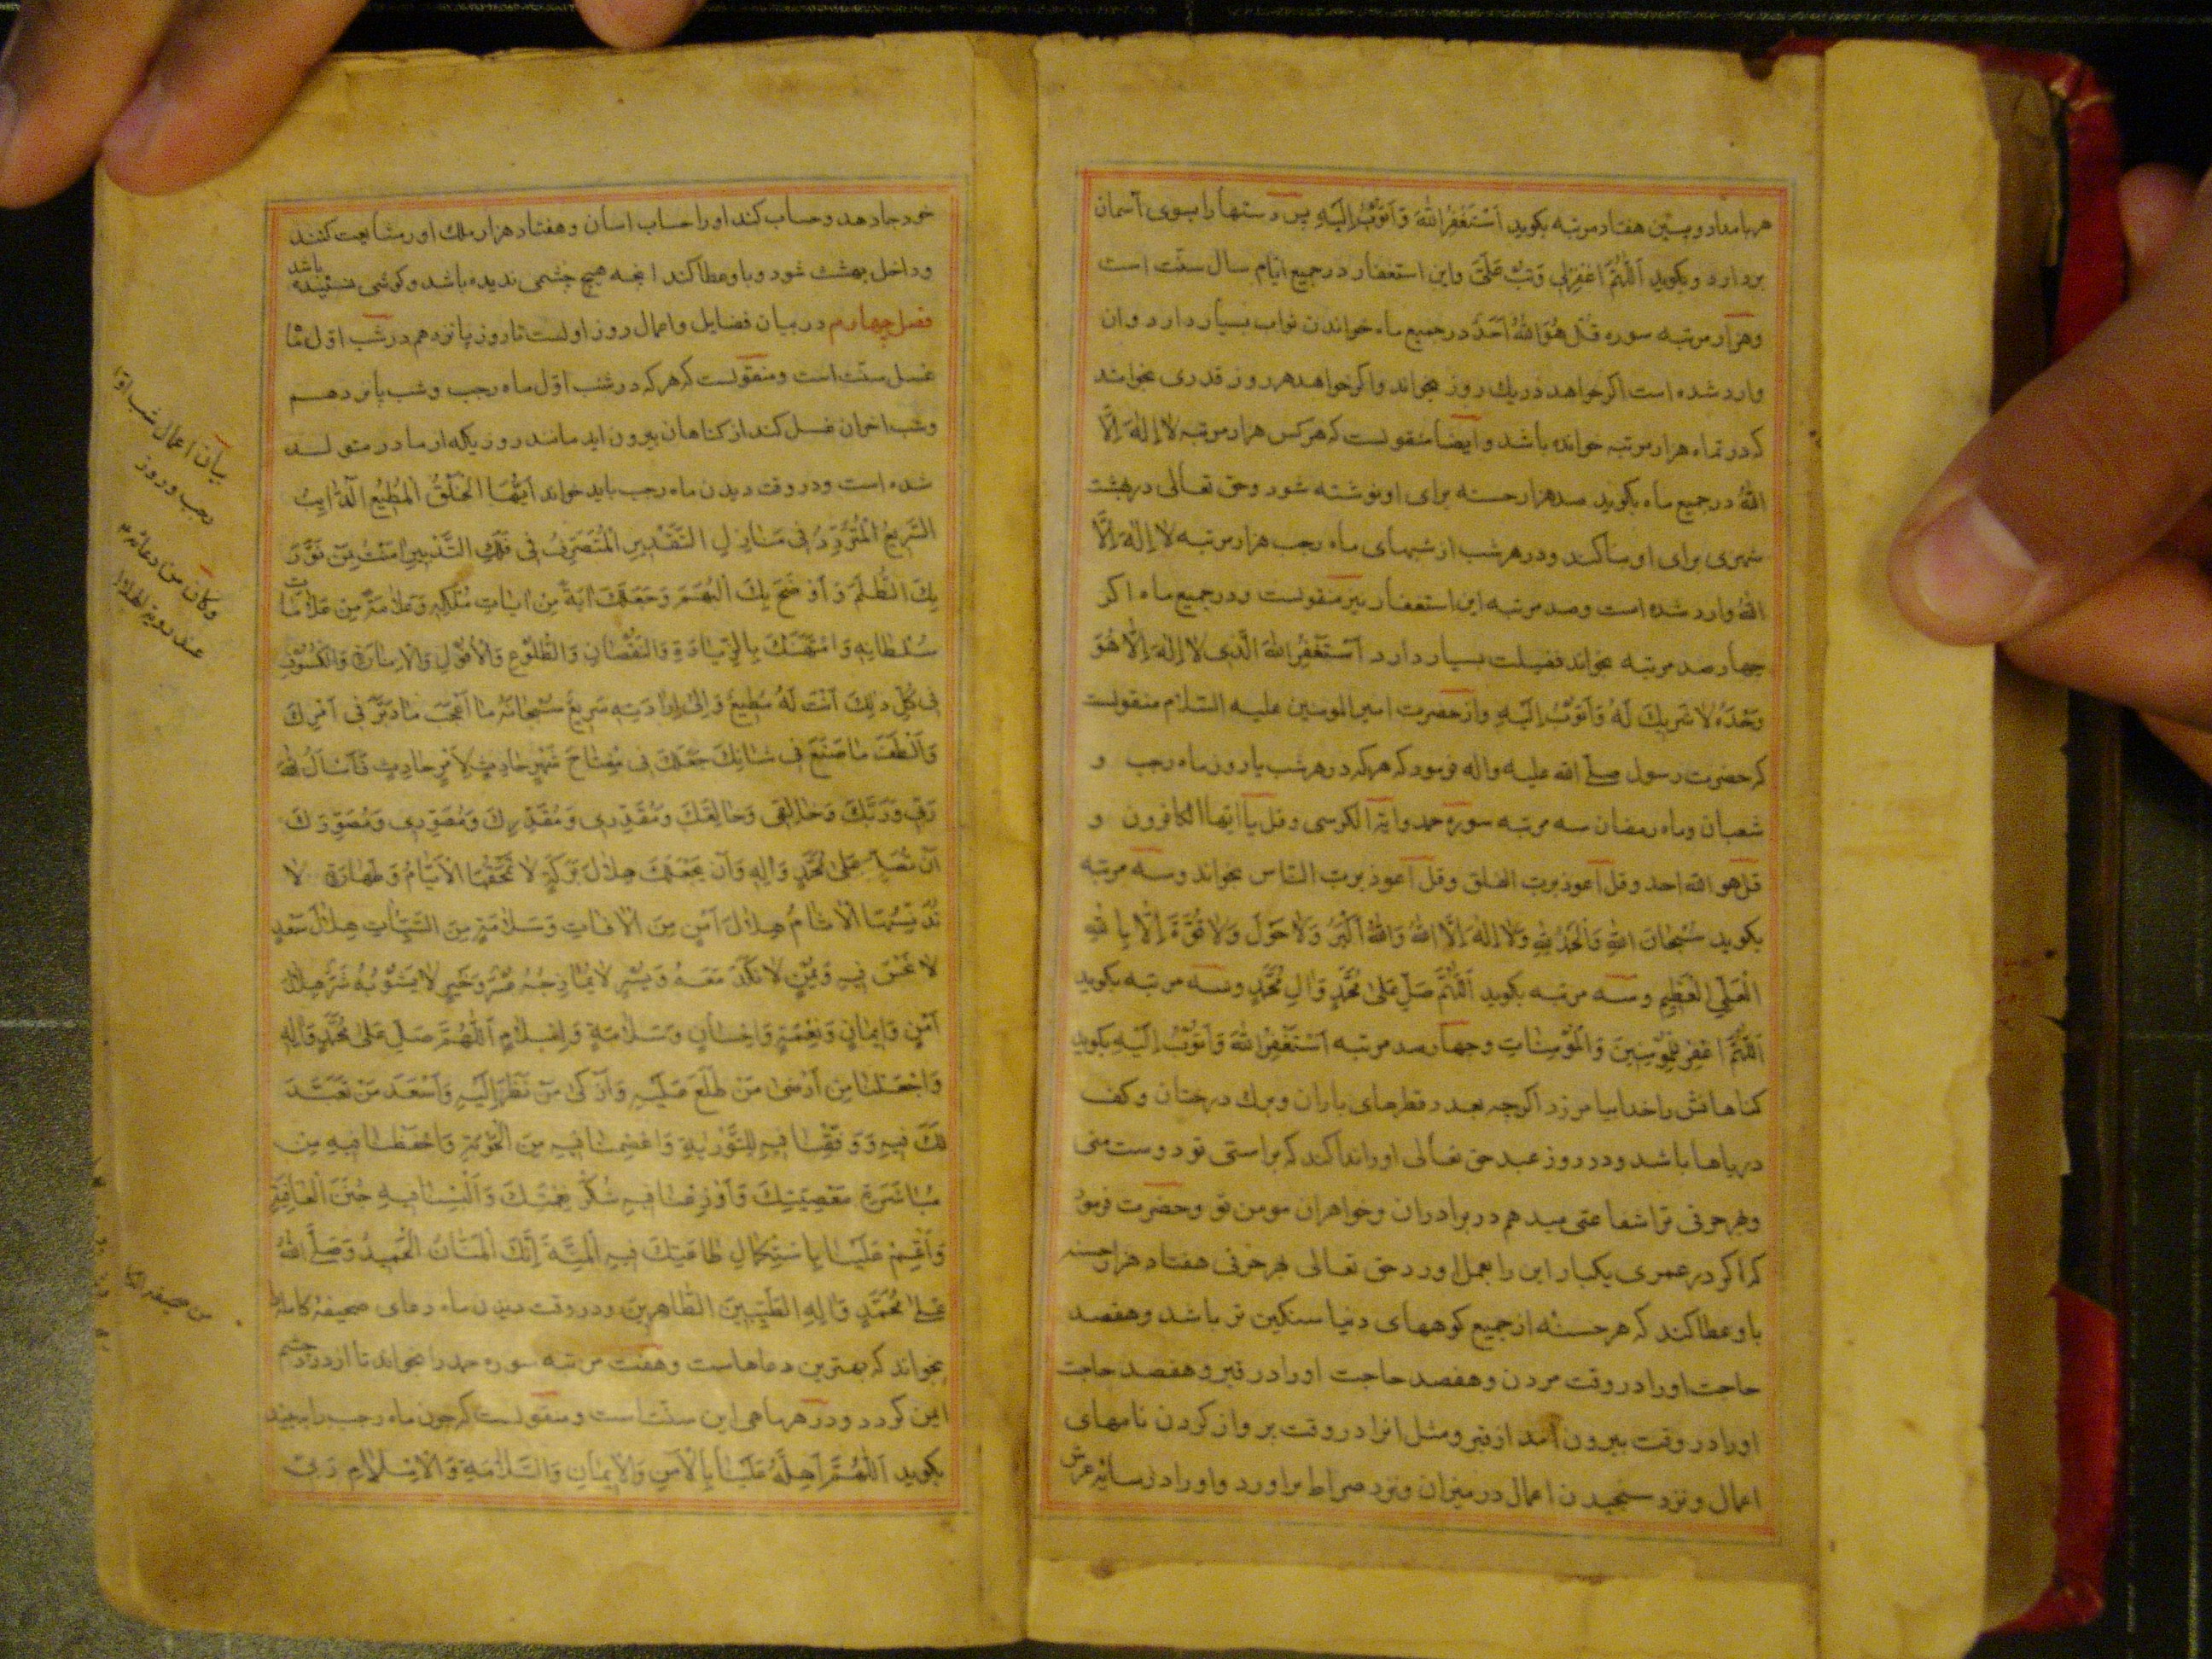 هربامداد و پسین هفتاد مرتبه بکوید اَسْتَغْفِرُ اللّٰهَ وَاَتُوْبُ اِلَیْهِ پس دستها را بسوی آسمان
بردارد و بکوید اَللّٰهُمَّ اغْفِرْلِی وَتُبْ عَلَیَّ واین استغفار در جمیع ایّام سال سنّت است
وهزار مرتبه سوره قُلْ هُوَ اللّٰهُ اَحَدٌ در جمیع ماه خواندن ثواب بسیار دارد وان
وارد شده است اکر خواهد در یك روز بخواند واکر خواهد هر روز قدری بخواند
که در تماه هزار مرتبه خوانده باشد وایضا منقولست که هر کس هزار مرتبه لا اِلٰهَ اِلَّا
اللّٰهُ در جمیع ماه بکوید صد هزار حسنه برای او نوشته شود وحق تعالی در بهشت
شهری برای او بنا کند ودر هر شب از شبهای ماه رجب هزار مرتبه لا اِلٰهَ اِلَّا
اللّٰهُ وارد شده است وصد مرتبه این استغفار نیز منقولست ودر جمیع ماه اکر
چهار صد مرتبه بخواند فضیلت بسیار دارد اَسْتَغْفِرُ اللّٰهَ الَّذِی لا اِلٰهَ اِلَّا هُوَ
وَحْدَهُ لا شَرِیكَ لَهُ وَاَتُوْبُ اِلَیْهِ واز حضرت امیر المومنین علیه السّلام منقولست
که حضرت رسول صلی الله علیه واله فرمود که هر که در هر شب یا روز ماه رجب و
شعبان وماه رمضان سه مرتبه سوره حمد وایة الکرسی وقل یا ایها الکافرون و
قل هو الله احد وقل اعوذ برب الفلق وقل اعوذ برب النّاس بخواند وسه مرتبه
بکوید سُبْحانَ اللّٰهِ وَالْحَمْدُ لِلّٰهِ وَلا اِلٰهَ اِلَّا اللّٰهُ وَاللّٰهُ اَکْبَرُ وَلا حَوْلَ وَلا قُوَّةَ اِلَّا بِاللّٰهِ
الْعَلِیِّ الْعَظِیمِ وسه مرتبه بکوید اَللّٰهُمَّ صَلِّ عَلٰی مُحَمَّدٍ وَالِ مُحَمَّدٍ وسه مرتبه بکوید
اَللّٰهُمَّ اغْفِرْ لِلْمُؤْمِنِینَ وَالْمُؤْمِناتِ وچهار صد مرتبه اَسْتَغْفِرُ اللّٰهَ وَاَتُوْبُ اِلَیْهِ بکوید
کناهانش را خدا بیامرزد اکرچه بعدد قطرهای باران وبرك درختان وکف
دریاها باشد ودر روز عید حق تعالی اورا ندا کند که براستی تو دوست منی
وبهر حرفی ترا شفاعتی میدهم در برادران وخواهران مومن تو وحضرت فرمود
که اکر در عمری یکبار این را بعمل اورد حق تعالی بهر حرفی هفتاد هزار حسنه
باو عطا کند که هر حسنه از جمیع کوههای دنیا سنکین تر باشد وهفصد
حاجت اورا در وقت مردن وهفصد حاجت اورا در قبر وهفصد حاجت
اورا در وقت بیرون آمد از قبر ومثل انرا در وقت پرواز کردن نامهای
اعمال ونزد سنجیدن اعمال در میزان ونزد صراط براورد واورا در سایهٔ عرش
خود جا دهد وحساب کند اورا حساب اسان وهفتاد هزار ملك اورا مشایعت کنند
وداخل بهشت شود وباو عطا کند انچه هیچ چشمی ندیده باشد وکوشی نشنیده باشد
فصل چهارم در بیان فضایل واعمال روز اولست تا روز پانزدهم در شب اوّل
غسل سنّت است ومنقولست که هر که در شب اوّل ماه رجب وشب پانزدهم
وشب اخران غسل کند از کناهان بیرون اید مانند روزیکه از مادر متولد
شده است ودر وقت دیدن ماه رجب باید خواند اَیُّهَا الْخَلْقُ الْمُطِیْعُ الدّٰائِبُ
السَّرِیعُ الْمُتَرَدِّدُ فِی مَنٰازِلِ التَّقْدِیرِ الْمُتَصَرِّفُ فِی فَلَكِ التَّدْبِیرِ اٰمَنْتُ بِمَنْ نَوَّرَ
بِكَ الظُّلَمَ وَاَوْضَحَ بِكَ الْبُهَمَ وَجَعَلَكَ اٰیَةً مِنْ اٰیٰاتِ مُلْکِهِ وَعَلٰامَةً مِنْ عَلٰامٰاتِ
سُلْطٰانِهِ وَامْتَهَنَكَ بِالزِّیٰادَةِ وَالنُّقْصٰانِ وَالطُّلُوْعِ وَالْاُفُوْلِ وَالْاِنٰارَةِ وَالْکُسُوْفِ
فِی کُلِّ ذٰلِكَ اَنْتَ لَهُ مُطِیعٌ وَاِلٰی اِرٰادَتِهِ سَرِیعٌ سُبْحٰانَهُ مٰا اَعْجَبَ مٰا دَبَّرَ فِی اَمْرِكَ
وَاَلْطَفَ مٰا صَنَعَ فِی شٰانِكَ جَعَلَكَ فِی مِفْتٰاحَ شَهْرٍ حٰادِثٍ لِاَمْرٍ حٰادِثٍ فَاَسْاَلُ اللّٰهَ
رَبِّی وَرَبَّكَ وَخٰالِقِی وَخٰالِقَكَ وَمُقَدِّرِی وَمُقَدِّرَكَ وَمُصَوِّرِی وَمُصَوِّرَكَ
اَنْ یُصَلِّیَ عَلٰی مُحَمَّدٍ وَاٰلِهِ وَاَنْ یَجْعَلَكَ هِلٰالَ بَرَکَةٍ لا تَمْحَقُهَا الْاَیّٰامُ وَطَهٰارَةٍ لا
تُدَنِّسُهَا الْاٰثٰامُ هِلٰالَ اَمْنٍ مِنَ الْاٰفٰاتِ وَسَلٰامَةٍ مِنَ السَّیِّئٰاتِ هِلٰالَ سَعْدٍ
لا نَحْسَ فِیهِ وَیُمْنٍ لا نَکَدَ مَعَهُ وَیُسْرٍ لا یُمٰازِجُهُ عُسْرٌ وَخَیْرٍ لا یَشُوْبُهُ شَرٌّ هِلٰالَ
اَمْنٍ وَاِیمٰانٍ وَنِعْمَةٍ وَاِحْسٰانٍ وَسَلٰامَةٍ وَاِسْلٰامٍ اَللّٰهُمَّ صَلِّ عَلٰی مُحَمَّدٍ وَاٰلِهِ
وَاجْعَلْنٰا مِنْ اَرْضٰی مَنْ طَلَعَ عَلَیْهِ وَاَزْکٰی مَنْ نَظَرَ اِلَیْهِ وَاَسْعَدَ مَنْ تَعَبَّدَ
لَكَ فِیهِ وَوَفِّقْنٰا فِیهِ لِلتَّوْبَةِ وَاعْصِمْنٰا فِیهِ مِنَ الْحَوْبَةِ وَاحْفَظْنٰا فِیهِ مِنْ
مُبٰاشَرَةِ مَعْصِیَتِكَ وَاَوْزِعْنٰا فِیهِ شُکْرَ نِعْمَتِكَ وَاَلْبِسْنٰا فِیهِ جُنَنَ الْعٰافِیَةِ
وَاَتْمِمْ عَلَیْنٰا بِاسْتِکْمٰالِ طٰاعَتِكَ فِیهِ الْمِنَّةَ اِنَّكَ الْمَنّٰانُ الْحَمِیدُ وَصَلَّی اللّٰهُ
عَلٰی مُحَمَّدٍ وَاٰلِهِ الطَّیِّبِینَ الطّٰاهِرِینَ ودر وقت دیدن ماه دعای صحیفهٔ کامله
بخواند که بهترین دعاهاست وهفت مرتبه سوره حمد را بخواند تا از درد چشم
ایمن کردد ودر هر ماهی این سنّت است ومنقولست که چون ماه رجب را ببیند
بکوید اَللّٰهُمَّ اَهِلَّهُ عَلَیْنٰا بِالْاَمْنِ وَالْاِیمٰانِ وَالسَّلٰامَةِ وَالْاِسْلٰامِ رَبِّی
بیان اعمال شب اوّل
رجب وروز
وکان من دعائه ع
عند رویة الهلال
من صحیفه